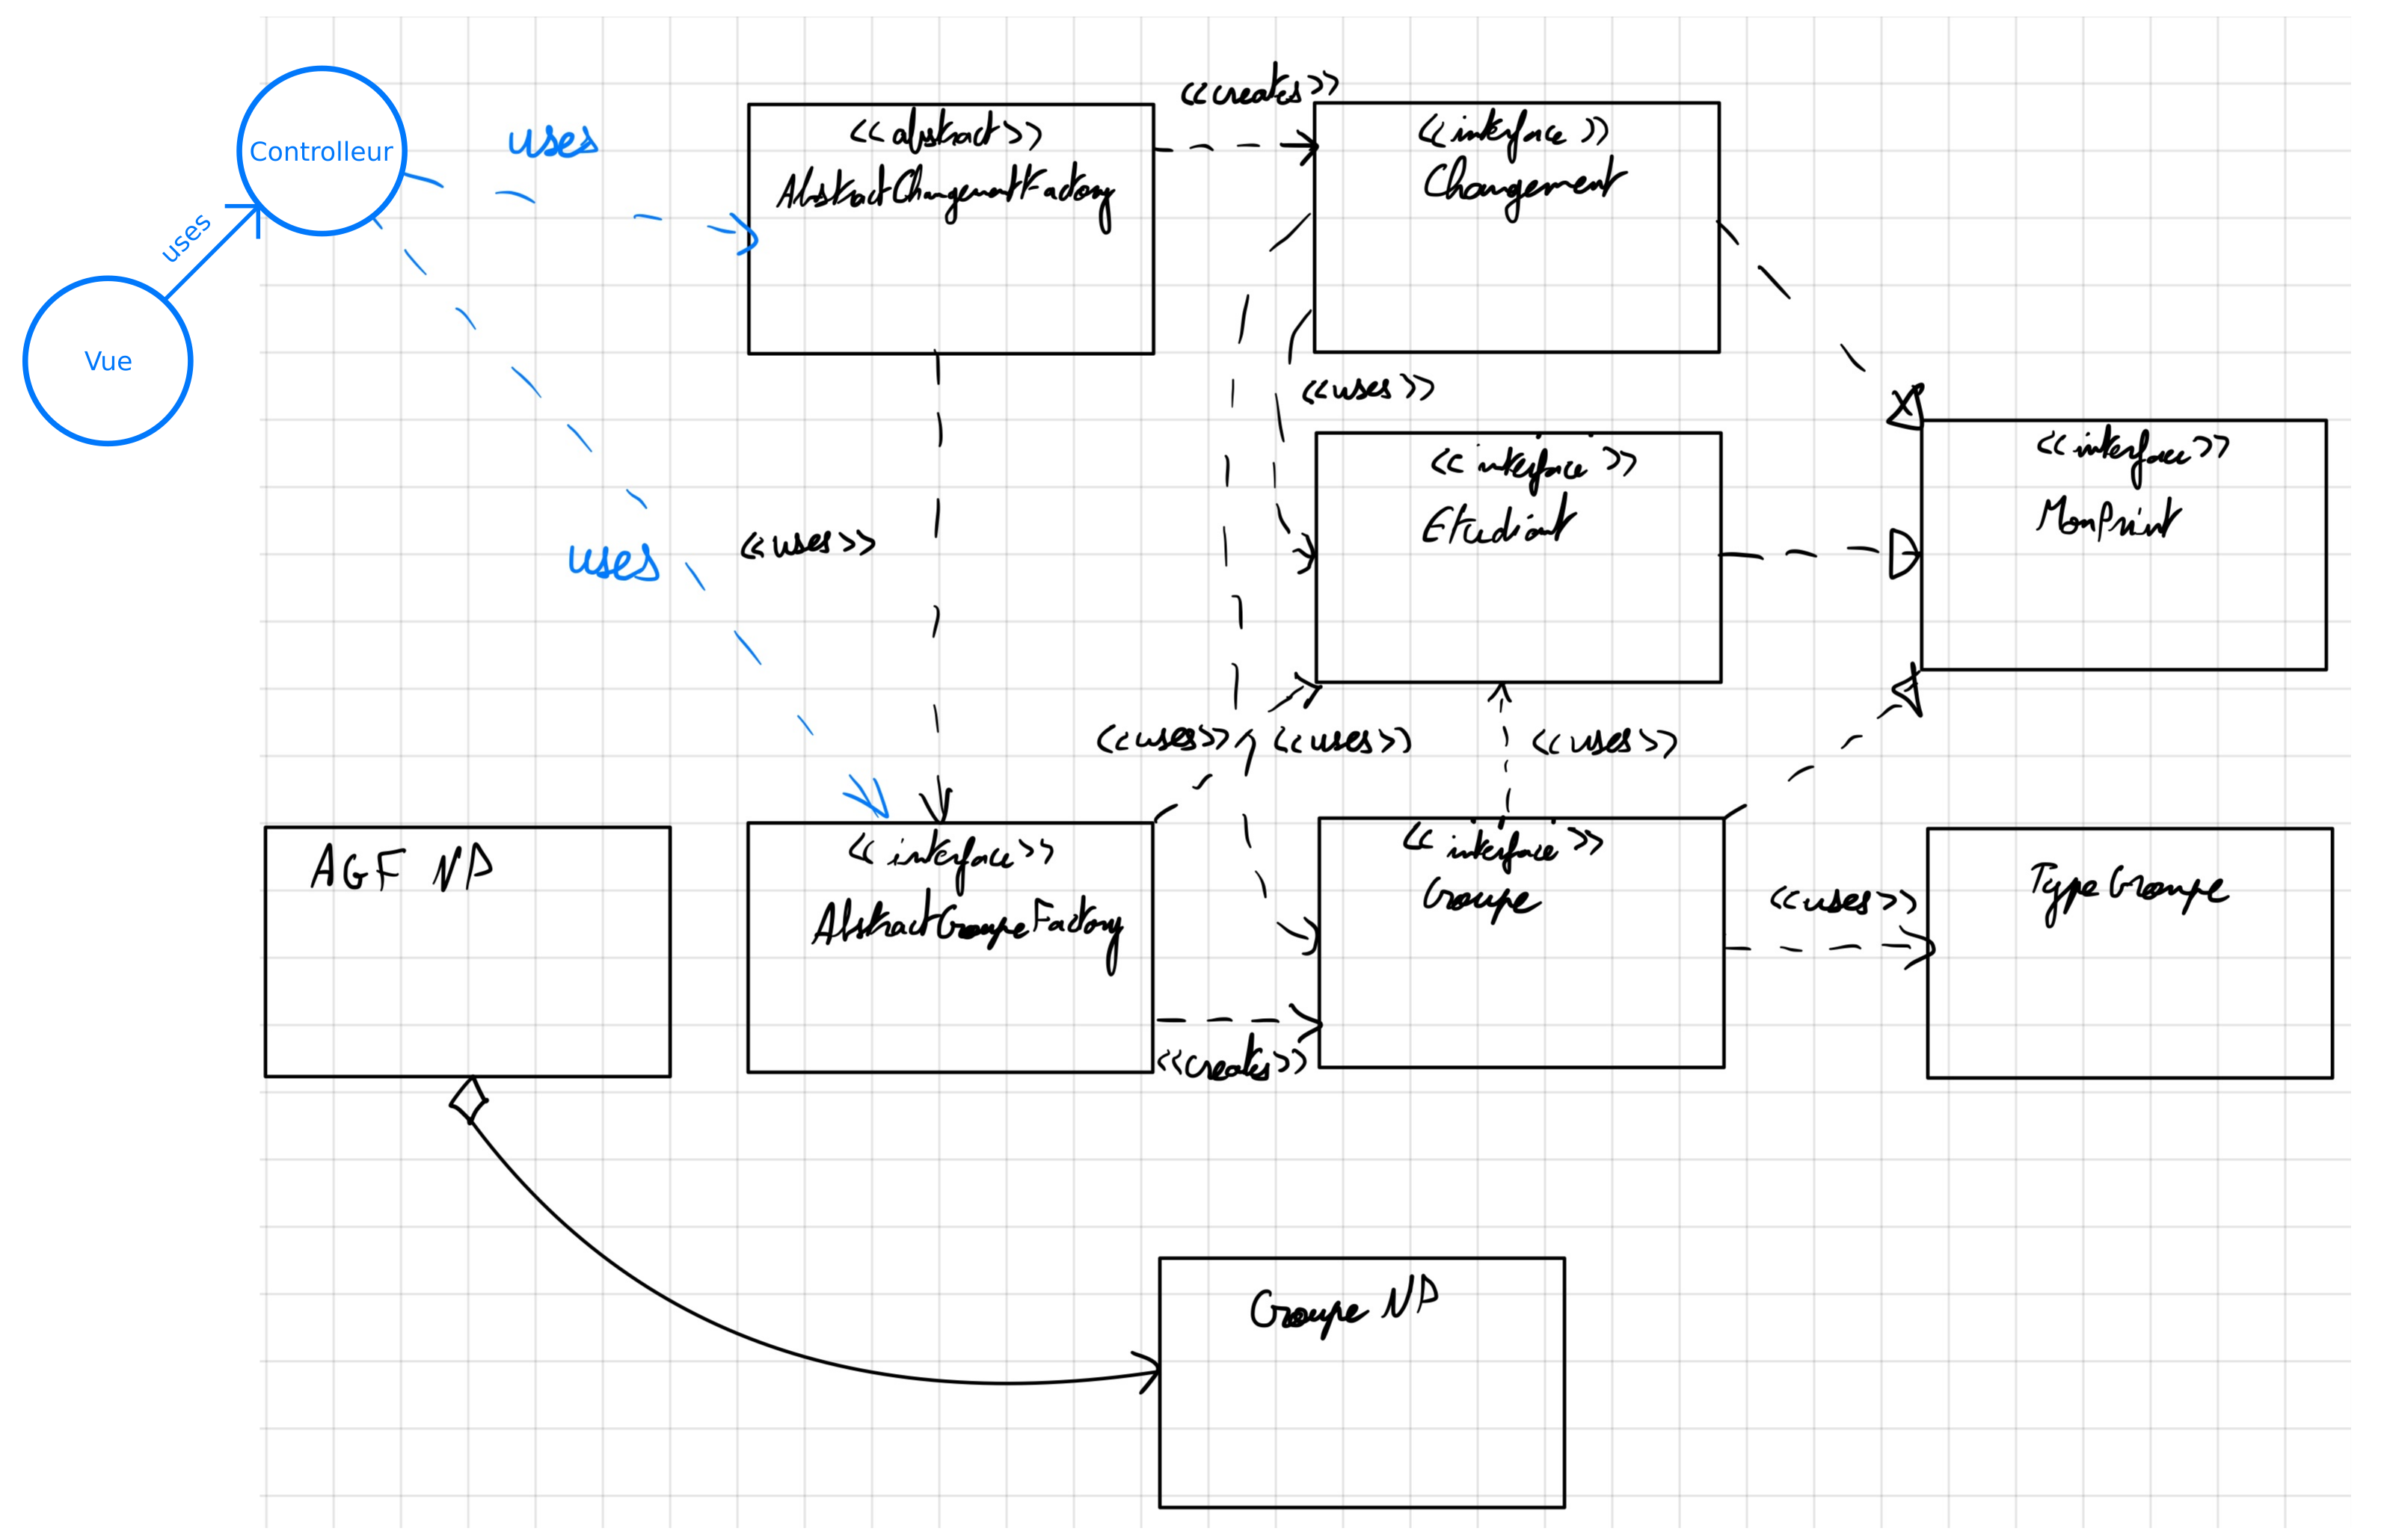 Controlleur
uses
uses
Vue
<<abstract>>
AbstractChangementFactory
<<creates>>
<<interface>>
Changement
<<uses>>
<<interface>>
Etudiant
<<interface>>
MonPrint
uses
<<uses>>
<<uses>>
<<uses>>
<<uses>>
AGF NP
<<interface>>
AbstractGroupeFactory
<<creates>>
<<interface>>
Groupe
<<uses>>
TypeGroupe
Groupe NP